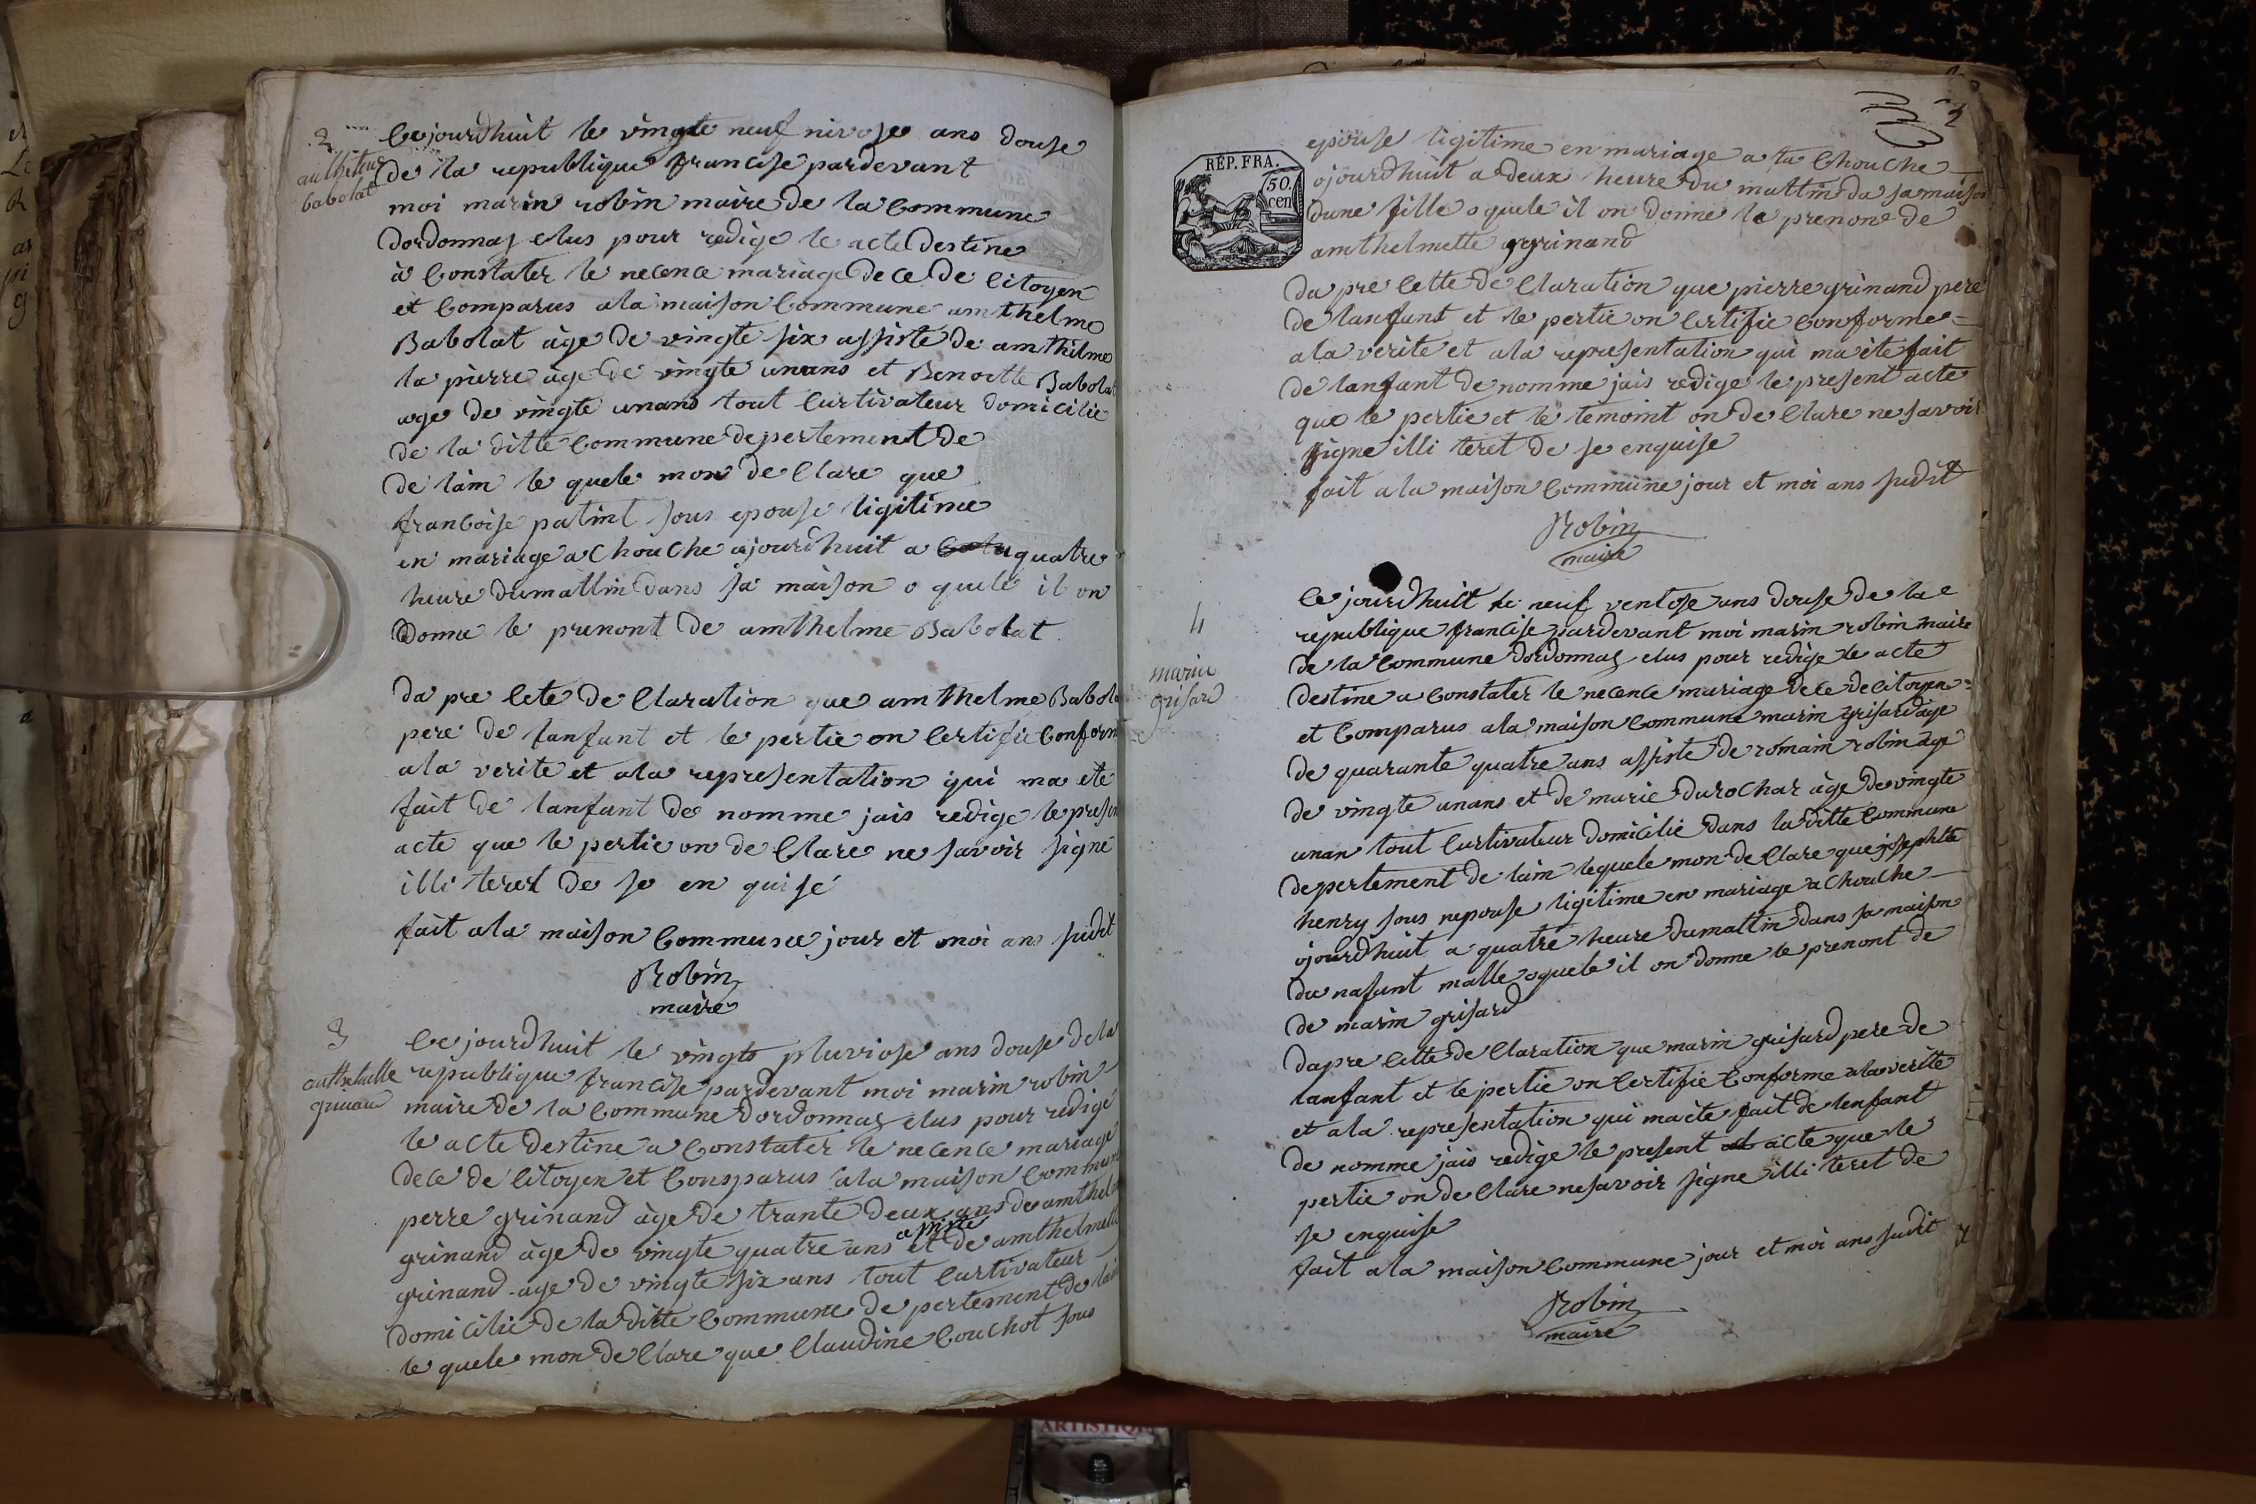 2
anthelme
babolat
Cejourdhuit le vingte neuf nivose ans douse
de la republique francise pardevant
moi marin robin maire de la Commune
dordonnas elus pour redige le acte destine
à Constater le necence mariage de ce de Citoyen
et Comparus ala maison Commune amthelme
Babolat àge de vingte six assisté de amthelme
la pierre àge de vingte unans et Benoitte Babolat
age de vingte unans tout Curtivateur domicilie
de la ditte Commune depertement de
de lain le quele mon de Clare que
francoise patint sous epouse ligitime
en mariage a Chouche ajourdhuit a quatre
heure dumattin dans sa maison o quele il on
donne le prenont de amthelme Babolat
da pre Cete de Claration que amthelme Babola
pere de lanfant et le pertie on Certifie Conform
ala verite et ala representation qui ma ete
fait de lanfant de nomme jais redige le presen
acte que le pertie on de Clare ne savoir signé
illi teret de se en quise
fait ala maison Commune jour et moi ans sudit
Robin
maire
3
anthelmette
grinand
Cejourdhuit le vingte pluviose ans douse de la
republique francise pardevant moi marin robin
maire de la Commune dordonnas elus pour redigé
le acte destine a Constater le necence mariage
de ce de Citoyen et Comparus ala maison Commune
perre grinand àge de trante deux ans de amthelme
assiste
grinand àge de vingte quatre ans et de amthelmette
grinand age de vingte six ans tout Curtivateur
domicilie de la ditte Commune de pertement de lain
le quele mon de Clare que Claudine Couchot sous
2
RÉP. FRA.
50.
cen
epouse ligitime en mariage a la Chouche
ojourdhuit a deux heure du mattin da sa maison
dune fille o quele il on donne le prenon de
amthelmette grinand
da pre Cette de Claration que pierre grinand pere
de lanfant et le pertie on Certifie Conforme
ala verite et ala representation qui ma ète fait
de lanfant de nomme jais redige le present acte
que le pertie et le temoint on de Clare ne savoir
signe illi teret de se enquise
fait ala maison Commune jour et moi ans sudit
Robin
maire
4
marin
grisard
Ce jourdhuit le neuf ventose ans douse de la
republique francise pardevant moi marin robin maire
de la Commune dordonnas elus pour redige le acte
destine a Constater le necence mariage de ce de Citoyen
et Comparus ala maison Commune marin grisard àge
de quarante quatre ans assiste de romain robin àge
de vingte unans et de marie durochar àge de vingte
unan tout Curtivateur domicilie dans la ditte Commune
depertement de lain lequele mon de Clare que josephte
henry sous nepouse ligitime en mariage a Chouche
ojourdhuit a quatre heure dumattin dans sa maison
du nafant malle oquele il on donne le prenont de
de marin grisard
dapre Cette de Claration que marin grisard pere de
lanfant et le pertie on Certifie Conforme ala verite
et ala representation qui ma ète fait de lenfant
de nomme jais redige le present acte que le
pertie on de Clare nesavoir signe illi teret de
se enquise
fait ala maison Commune jour et moi ans sudit
Robin
maire
ARTISTIQU